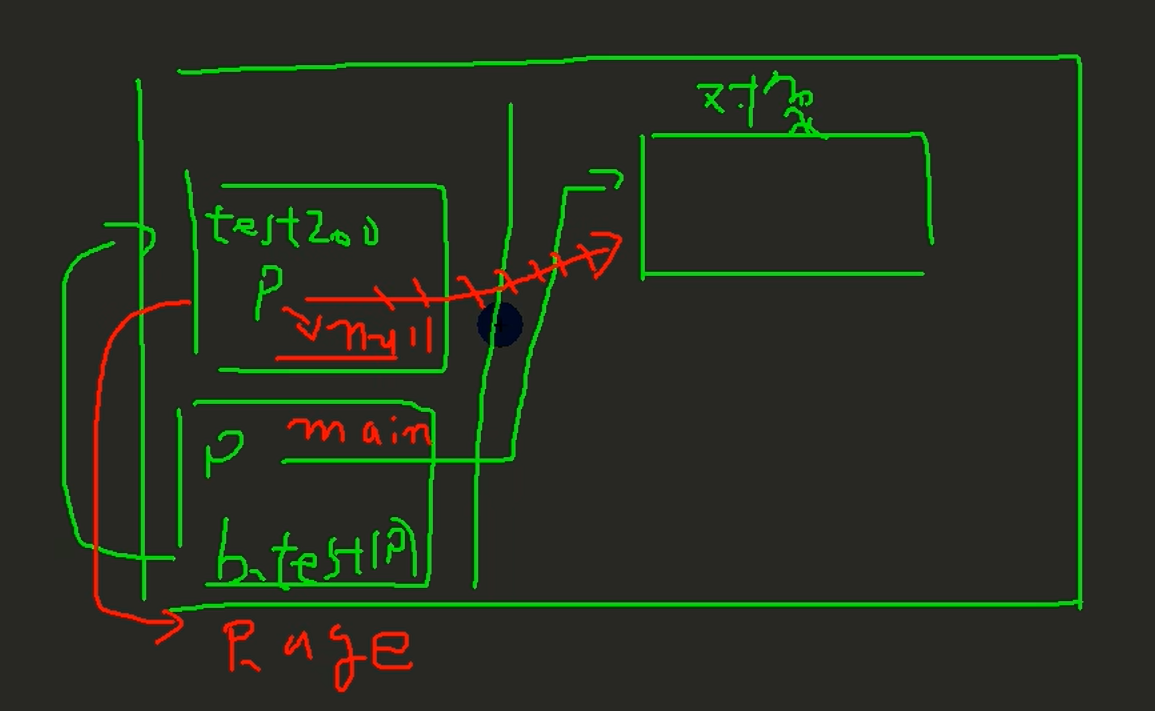 对象
test200
P
null
main
P
b.test(P)
P.age